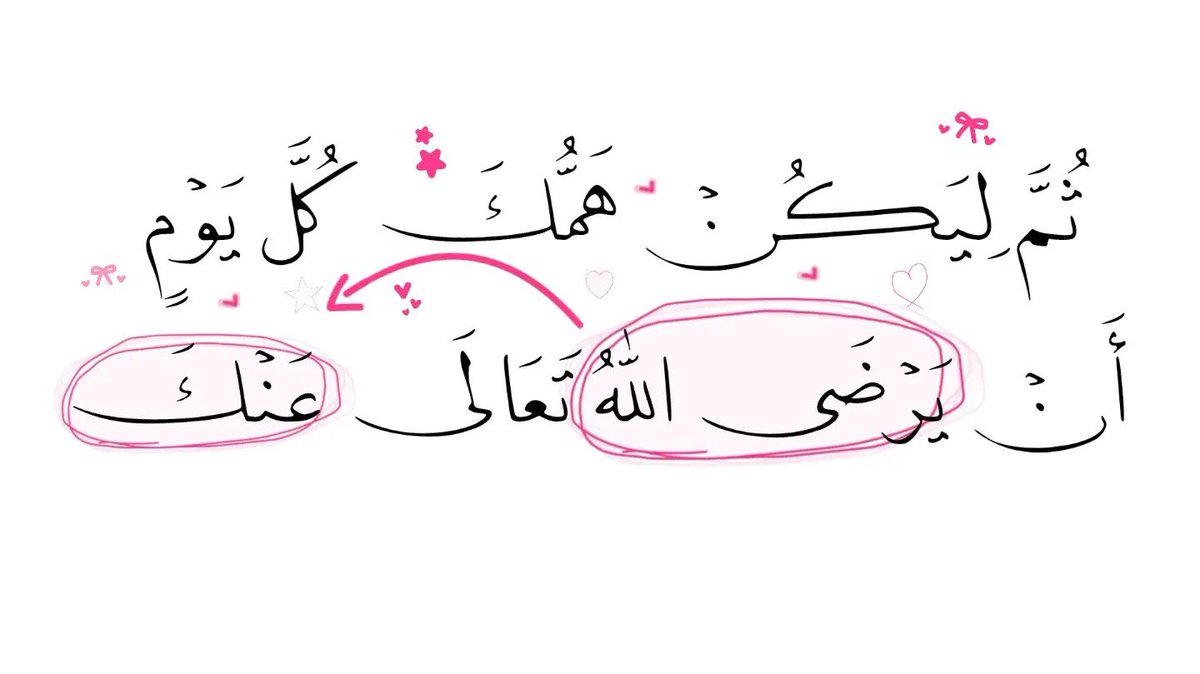 ثُمَّ لِيَكُنْ هَمُّكَ كُلَّ يَوْمٍ
أَنْ يَرْضَى اللّٰهُ تَعَالَى عَنْكَ